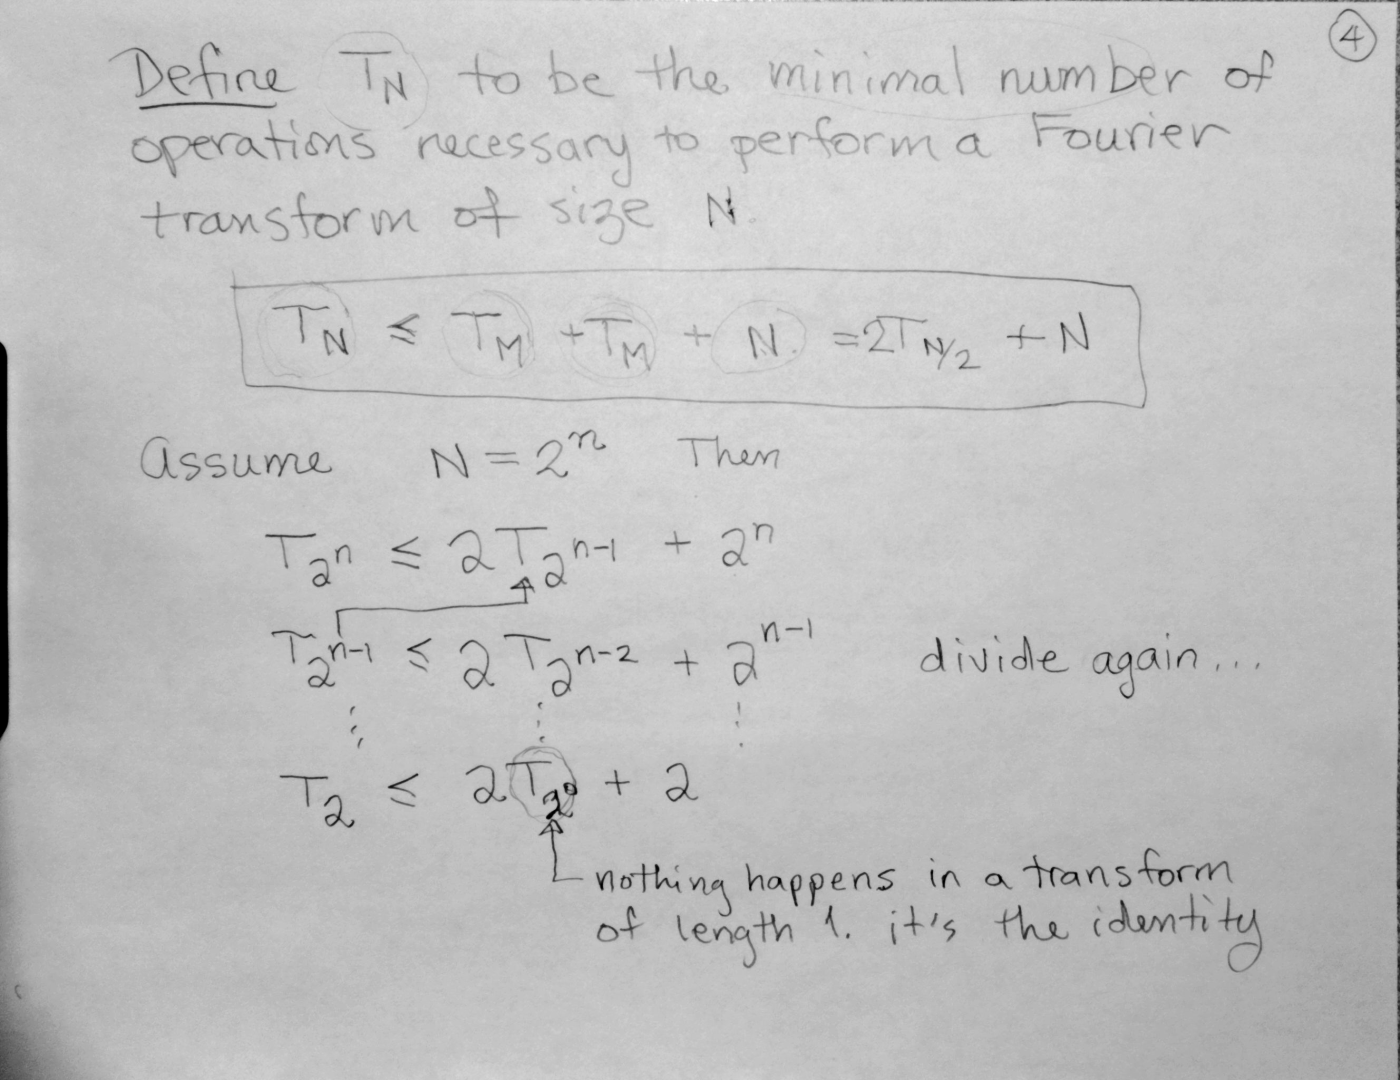 4
Define T_N to be the minimal number of
operations necessary to perform a Fourier
transform of size N.
T_N ≤ T_M + T_M + N = 2T_{N/2} + N
Assume N = 2^n Then
T_{2^n} ≤ 2T_{2^{n-1}} + 2^n
T_{2^{n-1}} ≤ 2T_{2^{n-2}} + 2^{n-1} divide again...
⋮ ⋮ ⋮
T_2 ≤ 2T_{2^0} + 2
nothing happens in a transform
of length 1. it's the identity